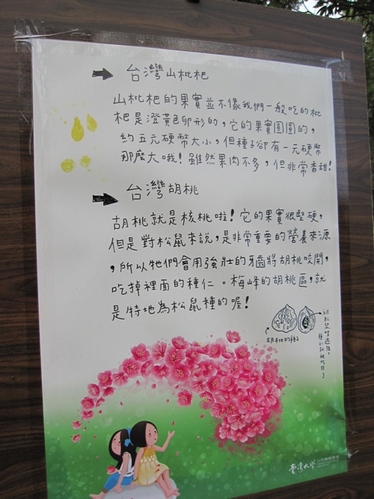 台灣山枇杷
山枇杷的果實並不像我們一般吃的枇
杷是澄黃色卵形的，它的果實圓圓的，
約五元硬幣大小，但種子卻有一元硬幣
那麼大哦！雖然果肉不多，但非常香甜！
台灣胡桃
胡桃就是核桃啦！它的果實很堅硬，
但是對松鼠來說，是非常重要的營養來源
，所以牠們會用強壯的牙齒將胡桃咬開，
吃掉裡面的種仁。梅峰的胡桃區，就
是特地為松鼠種的喔！
臺灣大學